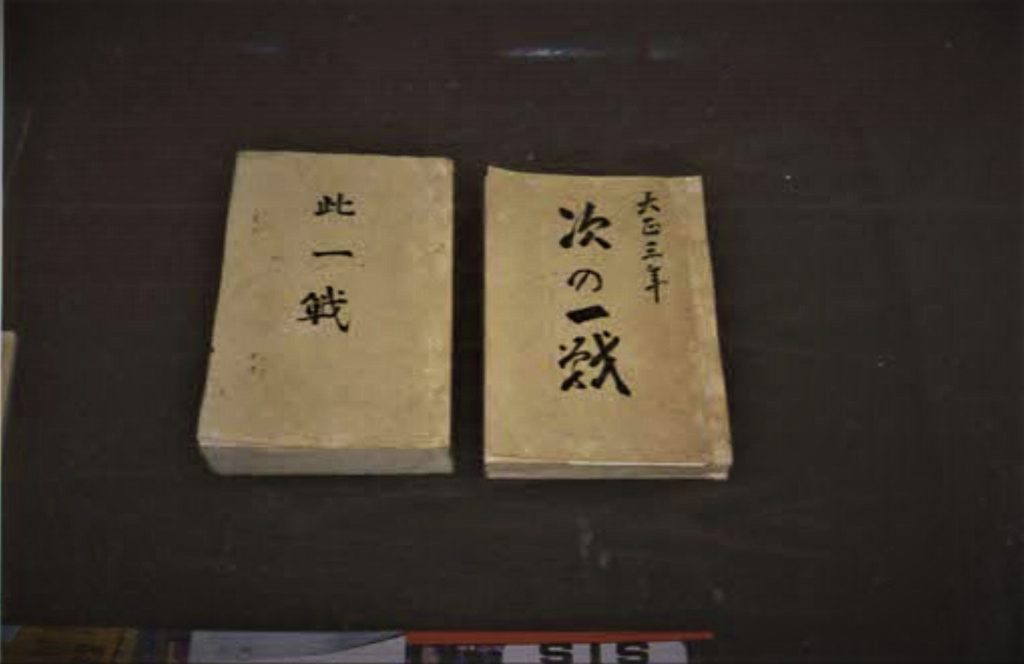 此一戦
大正三年
次の一戦